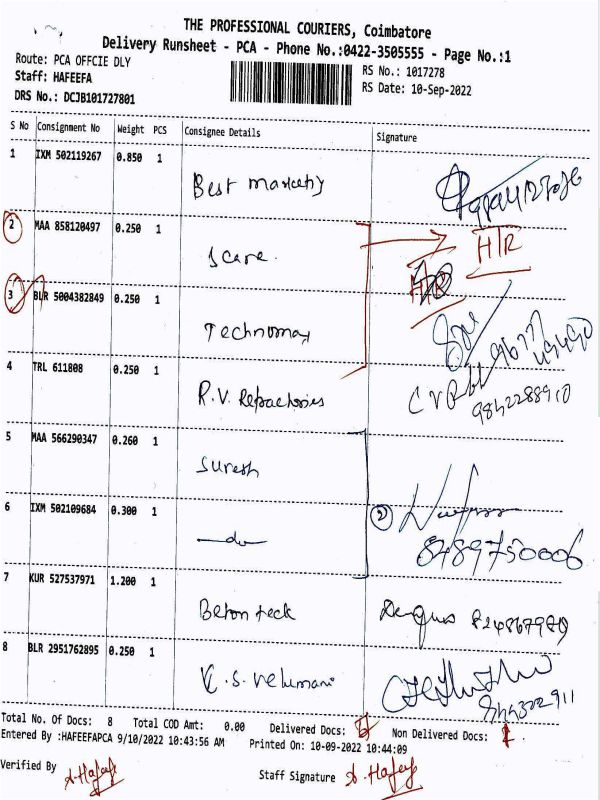 THE PROFESSIONAL COURIERS, Coimbatore
Delivery Runsheet - PCA - Phone No.:0422-3505555 - Page No.:1
Route: PCA OFFCIE DLY
RS No.: 1017278
Staff: HAFEEFA
RS Date: 10-Sep-2022
DRS No.: DCJB101727801
S No Consignment No Weight PCS Consignee Details Signature
1 IXM 502119267 0.850 1
Best
2 MAA 858120497 0.250 1
Scare. H/R
3 BLR 5004382849 0.250 1
Technomax
4 TRL 611808 0.250 1
R.V. Refractories 9842288910
5 MAA 566290347 0.260 1
Suresh
6 IXM 502109684 0.300 1 2
-do- 8489750006
7 KUR 527537971 1.200 1
Beton teck
8 BLR 2951762895 0.250 1
K.S. Velumani
Total No. Of Docs: 8 Total COD Amt: 0.00 Delivered Docs: Non Delivered Docs:
Entered By :HAFEEFAPCA 9/10/2022 10:43:56 AM Printed On: 10-09-2022 10:44:09
Verified By A.Hafeefa Staff Signature A.Hafeefa